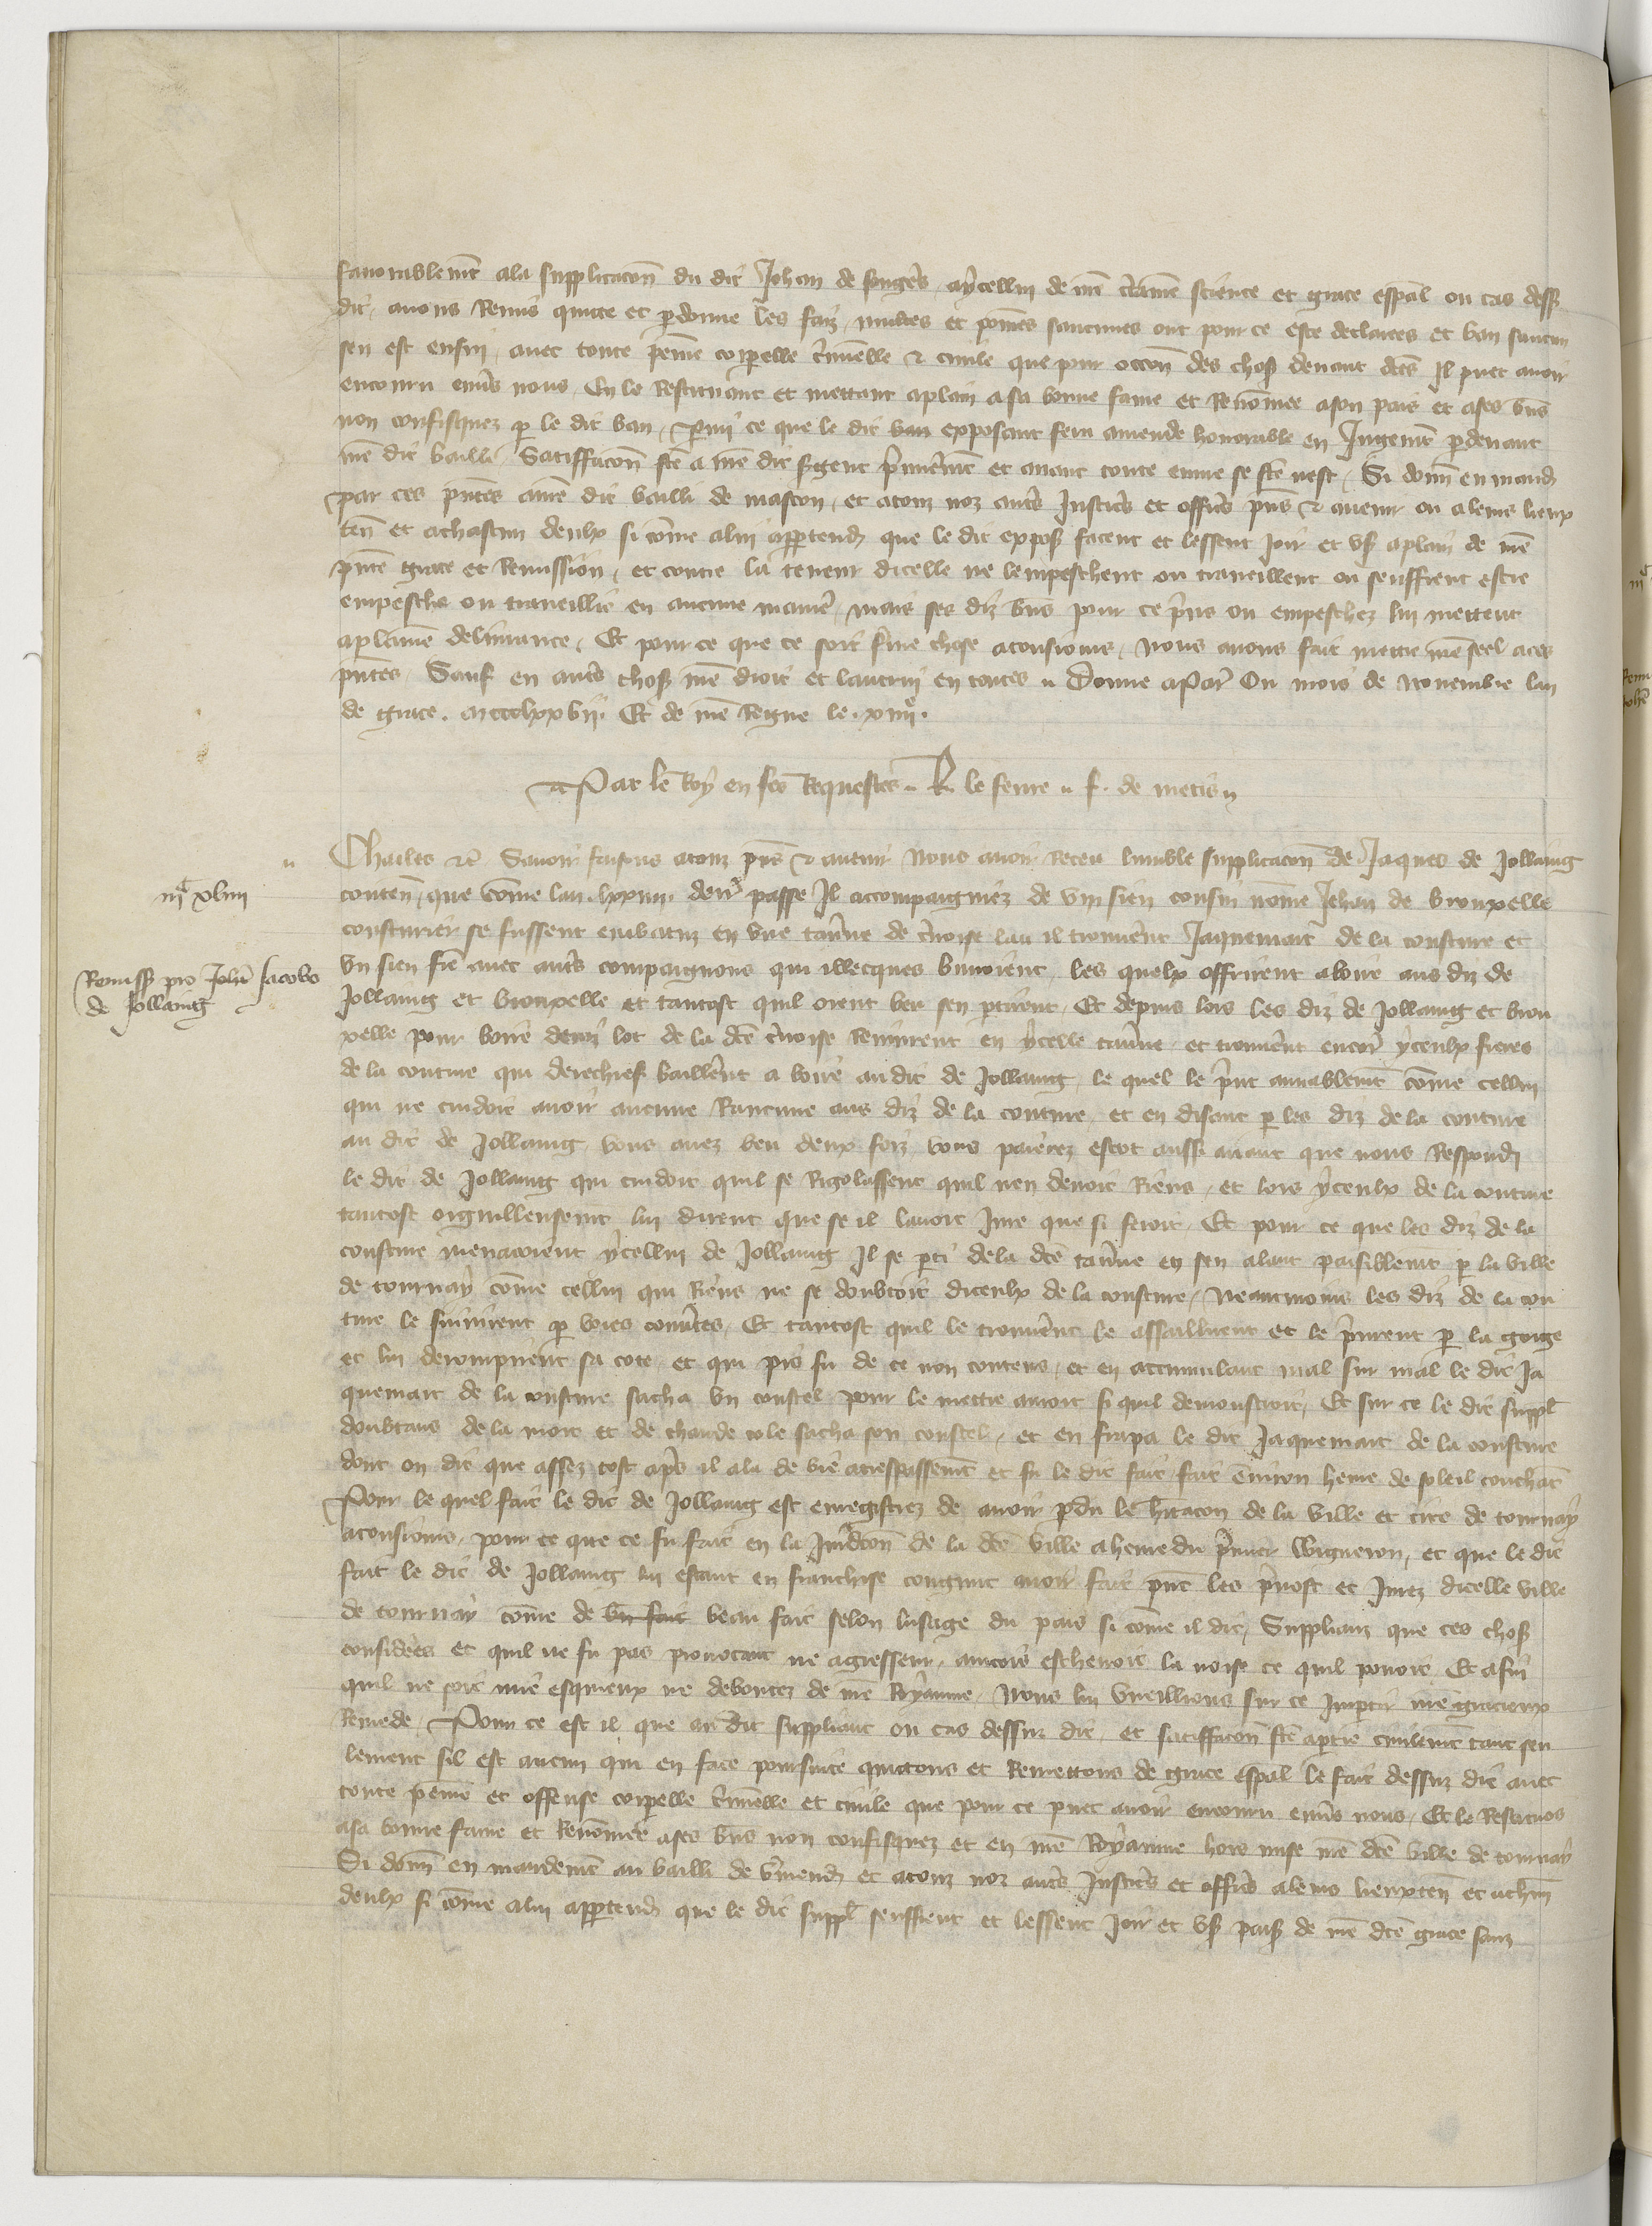 favorablemt ala supplicacon du dit Jehan de aycellui de nre certaine science et grace espal ou cas dess
dit, avons Remis quitte et pdonne les faiz, multes et poines saucunes ont pour ce este declairees et ban saucun
sen est ensui, avec toute peine corporelle criminelle & civile que pour occon des choss devant dces Il puet avoir
encouru envers nous, En le Restituant et mettant aplain asa bonne fame et Renomee ason pais et ases biens
non confisquez p le dit ban, parmi ce que le dit ban exposant fera amende honorable en Jugemt pdevant
nre dit bailli, Satiffacon fce a nre dit sergent premieremt et avant toute euvre se fce nest, Si donn en mand
par ces pntes anre dit bailli de mascon, et atouz noz autres Justiciers et officiers pns & avenir ou aleurs lieux
ten et achascun deulx si come alui appartend que le dit expos facent et lessent Joir et us aplain de nre
pnte grace et Remission, et contre la teneur dicelle ne lempeschent ou traveillent ou seuffrent estre
empesche ou traveillie en aucune maniere, mais ses diz biens pour ce prins ou empeschez lui mettent
aplaine delivrance, Et pour ce que ce soit ferme chose atousiours, Nous avons fait mettre nre seel aces
pntes, Sauf en autres choss nre droit et lautrui en toutes " Donne aParis Ou mois de Novembre lan
de grace. mccclxxvii. Et de nre Regne le. xiiiie.
Par le Roy en ses Requestes " R. le fevre " f. de metis "
" Charles etc Savoir faisons atouz pns & avenir Nous avoir Receu lumble supplicacon de Jaques de Jollaing
iiic xliiii
conten, que come lan. lxxiiii. derr passe Il accompaigniez de un sien cousin nome Jehan de brouxelle
cousturier se fussent embatuz en une taverne de cervoise lau il trouverent Jaquemart de la cousture et
Remiss pro Johe Jacobo
de Jollaing
un sien frere avec autres compaignons qui illecques buvoient, les quelx offrirent aboire aus diz de
Jollaing et brouxelle et tantost quil orent beu sen ptirent, Et depuis lors les diz de Jollaing et brou
xelle pour boire demi lot de la dce cervoise Revinrent en ycelle taverne et trouverent encor yceulx freres
de la couture qui derechief baillerent a boire au dit de Jollaing, le quel le print amiablemt come cellui
qui ne cuidoit avoir aucune Rancune aus diz de la couture, et en disant p les diz de la couture
au dit de Jollaing, vous avez beu deux foiz vous paierez escot aussi avant que nous Respond
le dit de Jollaing qui cuidoit quil se Rigolassent quil nen devoit Riens, et lors yceulx de la couture
tantost orguilleusemt lui dirent que se il lavoit Jure que si feroit, Et pour ce que les diz de la
cousture menacoient ycellui de Jollaing Il se pti dela dce taverne en sen alant paisiblemt p la ville
de tournay come cellui qui Riens ne se doubtoit diceulx de la cousture, Neantmoins les diz de la cou
ture le suivirent p voies couvertes, Et tantost quil le trouverent le assaillirent et le prinrent p la gorge
et lui derompirent sa cote, et qui pis fu de ce non contens, et en accumulant mal sur mal le dit Ja
quemart de la cousture sacha un coustel pour le mettre amort si quil demonstroit, Et sur ce le dit suppl
doubtans de la mort et de chaude cole sacha son coustel, et en frapa le dit Jaquemart de la cousture
dont on dit que assez tost apres il ala de vie atrespassemt et fu le dit fait fait environ heure de soleil couchat
Pour le quel fait le dit de Jollaing est enregistrez de avoir pdu le hitacon de la ville et cite de tournay
atousiours, pour ce que ce fu fait en la Juridicon de la dce ville a heure du premier wigneron, et que le dit
fait le dit de Jollaing lui estant en franchise congnut avoir fait pnt les prevost et Jurez dicelle ville
de tournay come de un fait beau fait selon lusage du pais si come il dit, Suppliant que ces choss
considerees et quil ne fu pas provocant ne agresseur, aincois eschevoit la noise ce quil povoit Et afin
quil ne soit mie esquieux ne deboutez de nre Royaume, Nous lui vueillions sur ce Impartir nre gracieux
Remede, Pour ce est il que au dit suppliant ou cas dessuz dit, et satiffacon fce aptie civilemt tant seu
lement sil est aucun qui en face poursuite quictons et Remettons de grace espal le fait dessuz dit avec
toute peine et offense corporelle criminelle et civile que pour ce puet avoir encouru envers nous, Et le Restituons
asa bonne fame et Renomee ases biens non confisquez et en nre Royaume hors mise nre dce ville de tournay
Si donn en mandemt au bailli de vermend et atouz noz autres Justiciers et officiers aleurs lieuxten et achun
deulx si come alui appartend que le dit suppl seuffrent et lessent Joir et us paiss de nre dce grace sanz